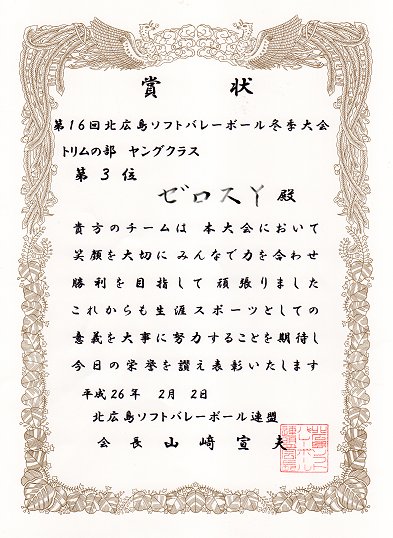 賞状
第16回北広島ソフトバレーボール冬季大会
トリムの部 ヤングクラス
第3位
ゼロスY 殿
貴方のチームは 本大会において
笑顔を大切に みんなで力を合わせ
勝利を目指して 頑張りました
これからも生涯スポーツとしての
意義を大事に努力することを期待し
今日の栄誉を讃え表彰いたします
平成26年 2月 2日
北広島ソフトバレーボール連盟
会長 山﨑宣夫